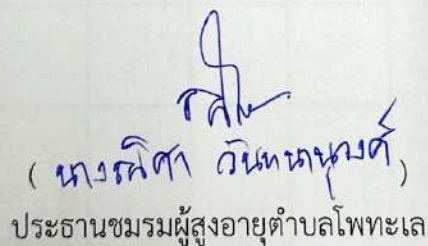 ( นางรณิศา วันทนานุวงศ์ )
ประธานชมรมผู้สูงอายุตำบลโพทะเล